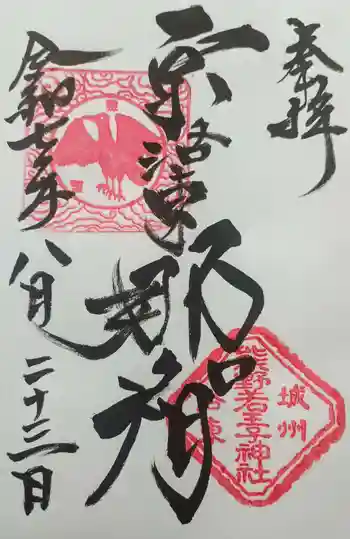 奉拝
京洛東
那智
城州
熊野若王子神社
洛東
令和七年
八月
二十三日